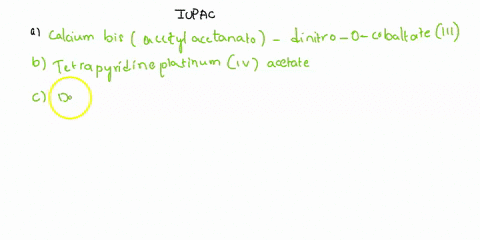 IUPAC
a) Calcium bis (acetyl acetanato) - dinitro-O-cobaltate (III)
b) Tetrapyridine platinum (IV) acetate
c) Do